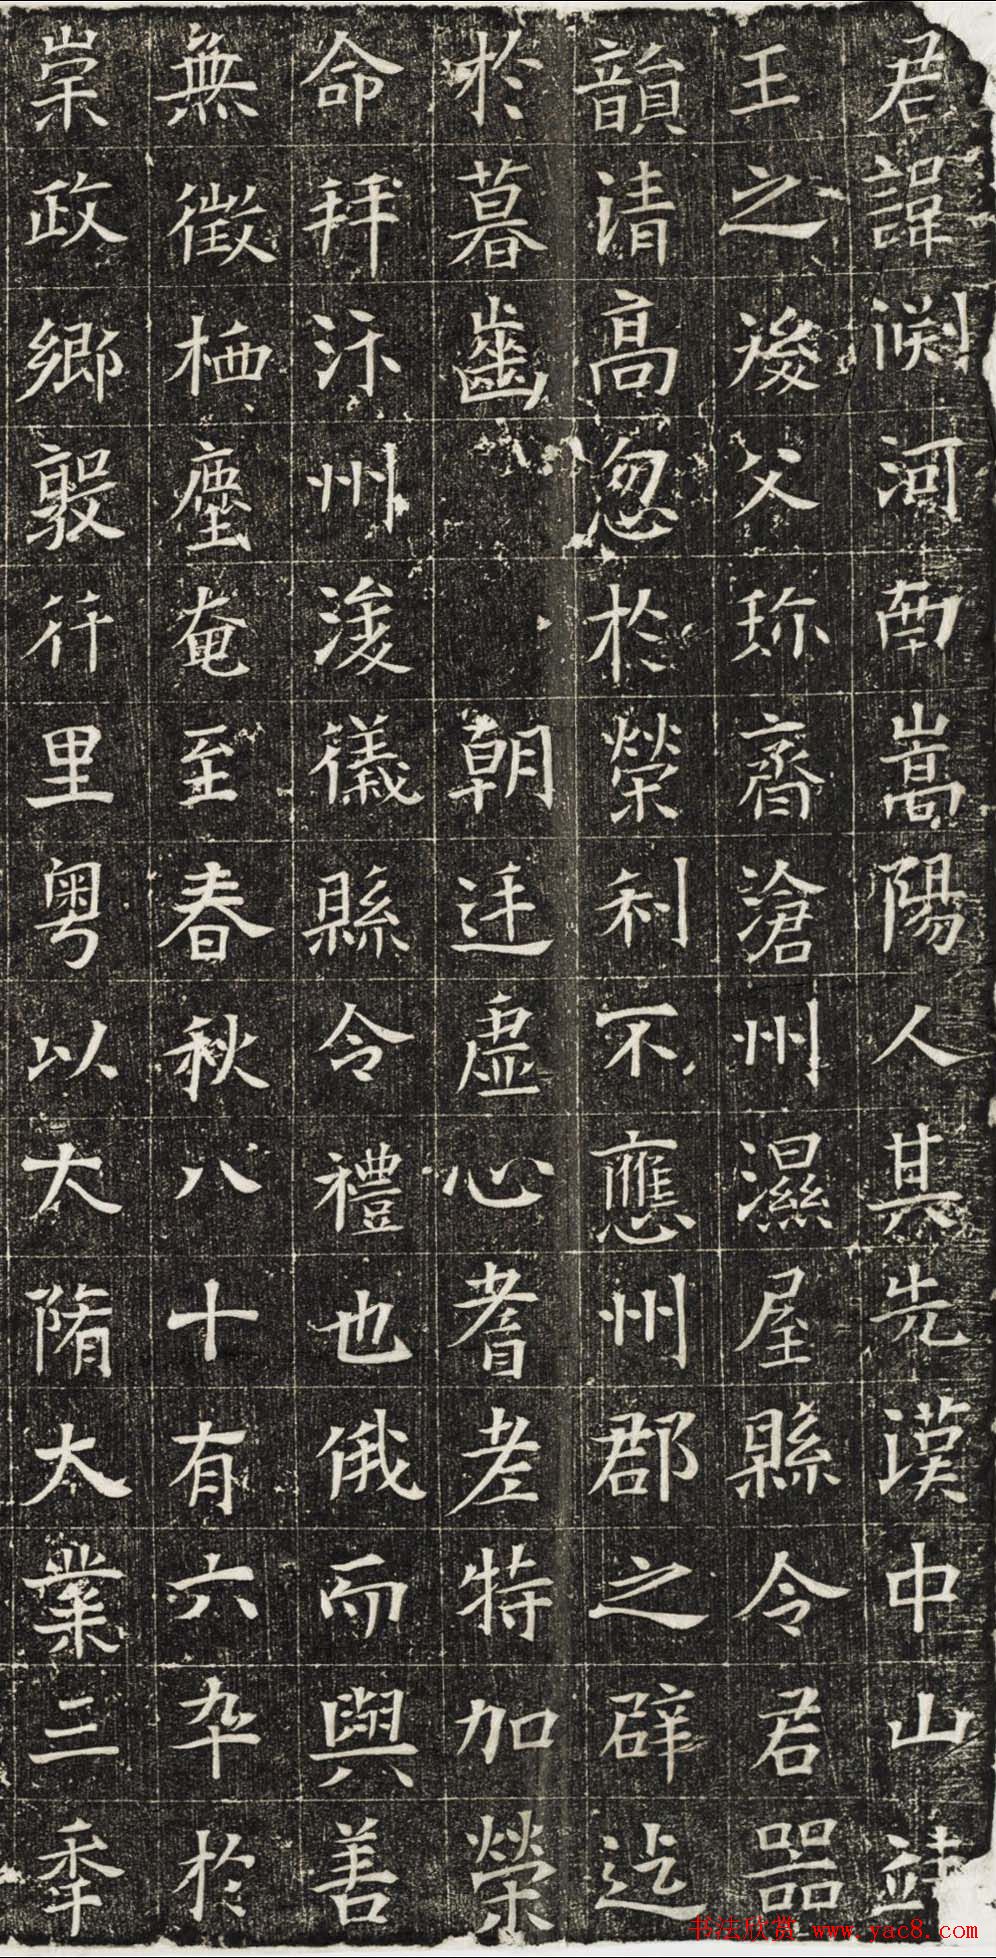 君諱渕河南嵩陽人其先漢中山靖
王之後父珎齊滄州濕屋縣令君器
韻清高忽於榮利不應州郡之辟迄
於暮齒朝廷虛心耆老特加榮
命拜汴州浚儀縣令禮也俄而與善
無徵栖塵奄至春秋八十有六卒於
崇政鄉敦行里粤以大隋大業三年
书法欣赏 www.yac8.com